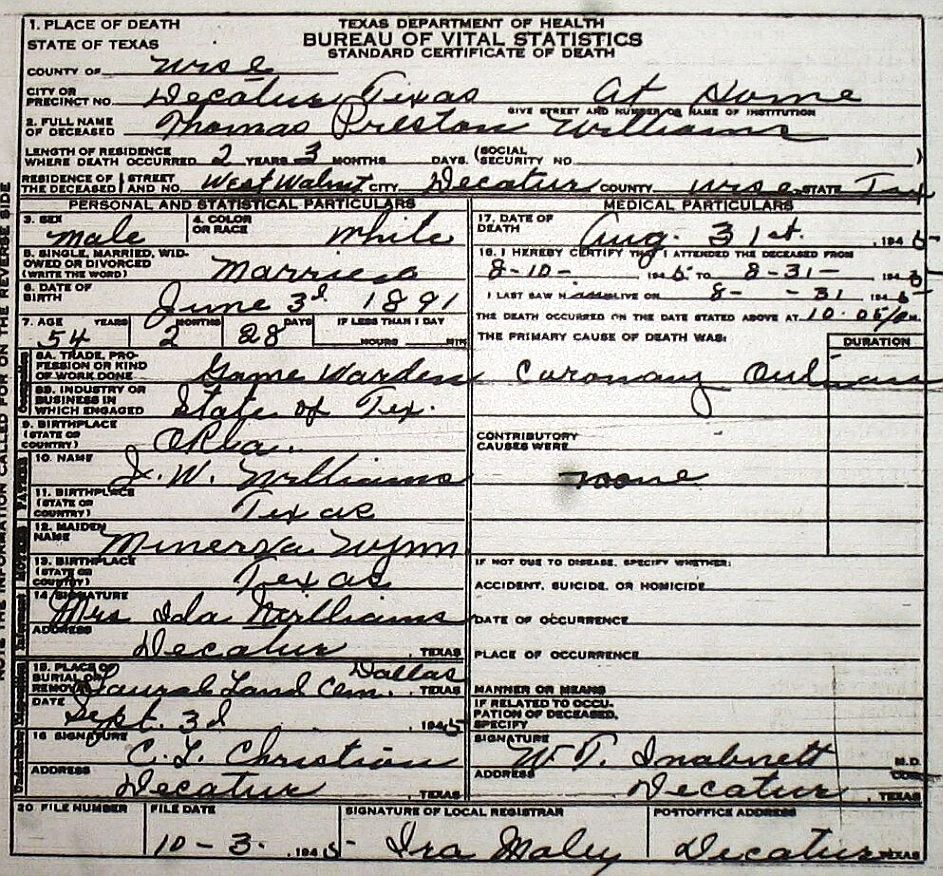 1. PLACE OF DEATH
STATE OF TEXAS
TEXAS DEPARTMENT OF HEALTH
BUREAU OF VITAL STATISTICS
STANDARD CERTIFICATE OF DEATH
COUNTY OF Wise
CITY OR PRECINCT NO. Decatur Texas At Home
GIVE STREET AND NUMBER OR NAME OF INSTITUTION
2. FULL NAME OF DECEASED Thomas Preston Williams
LENGTH OF RESIDENCE WHERE DEATH OCCURRED 2 YEARS 3 MONTHS DAYS. (SOCIAL SECURITY NO. )
RESIDENCE OF THE DECEASED STREET AND NO. West Walnut CITY Decatur COUNTY Wise STATE Tex
PERSONAL AND STATISTICAL PARTICULARS
3. SEX male
4. COLOR OR RACE White
5. SINGLE, MARRIED, WIDOWED OR DIVORCED (WRITE THE WORD) Married
6. DATE OF BIRTH June 3d 1891
7. AGE 54 YEARS 2 MONTHS 28 DAYS IF LESS THAN 1 DAY HOURS MIN
8A. TRADE, PROFESSION OR KIND OF WORK DONE Game Warden
8B. INDUSTRY OR BUSINESS IN WHICH ENGAGED State of Tex.
9. BIRTHPLACE (STATE OR COUNTRY) Okla.
FATHER
10. NAME J. W. Williams
11. BIRTHPLACE (STATE OR COUNTRY) Texas
MOTHER
12. MAIDEN NAME Minerva Wynn
13. BIRTHPLACE (STATE OR COUNTRY) Texas
Informant
14. SIGNATURE Mrs Ida Williams
ADDRESS Decatur, TEXAS
15. PLACE OF BURIAL OR REMOVAL Laural Land Cem. Dallas, TEXAS
DATE Sept. 3d 1945
16 SIGNATURE C. L. Christian
ADDRESS Decatur, TEXAS
MEDICAL PARTICULARS
17. DATE OF DEATH Aug. 31st. , 1945
18. I HEREBY CERTIFY THAT I ATTENDED THE DECEASED FROM
8-10- 1945 TO 8-31- 1945
I LAST SAW HIM ALIVE ON 8- -31 1945
THE DEATH OCCURRED ON THE DATE STATED ABOVE AT 10.05 M.
THE PRIMARY CAUSE OF DEATH WAS: DURATION
Coronary
CONTRIBUTORY CAUSES WERE
none
IF NOT DUE TO DISEASE, SPECIFY WHETHER:
ACCIDENT, SUICIDE, OR HOMICIDE
DATE OF OCCURRENCE
PLACE OF OCCURRENCE
MANNER OR MEANS
IF RELATED TO OCCUPATION OF DECEASED, SPECIFY
SIGNATURE W. T. Inabnett M.D.
ADDRESS Decatur, TEXAS
20. FILE NUMBER
FILE DATE 10-3-, 1945
SIGNATURE OF LOCAL REGISTRAR Ira Maley
POSTOFFICE ADDRESS Decatur TEXAS
NOTE THE INFORMATION CALLED FOR ON THE REVERSE SIDE